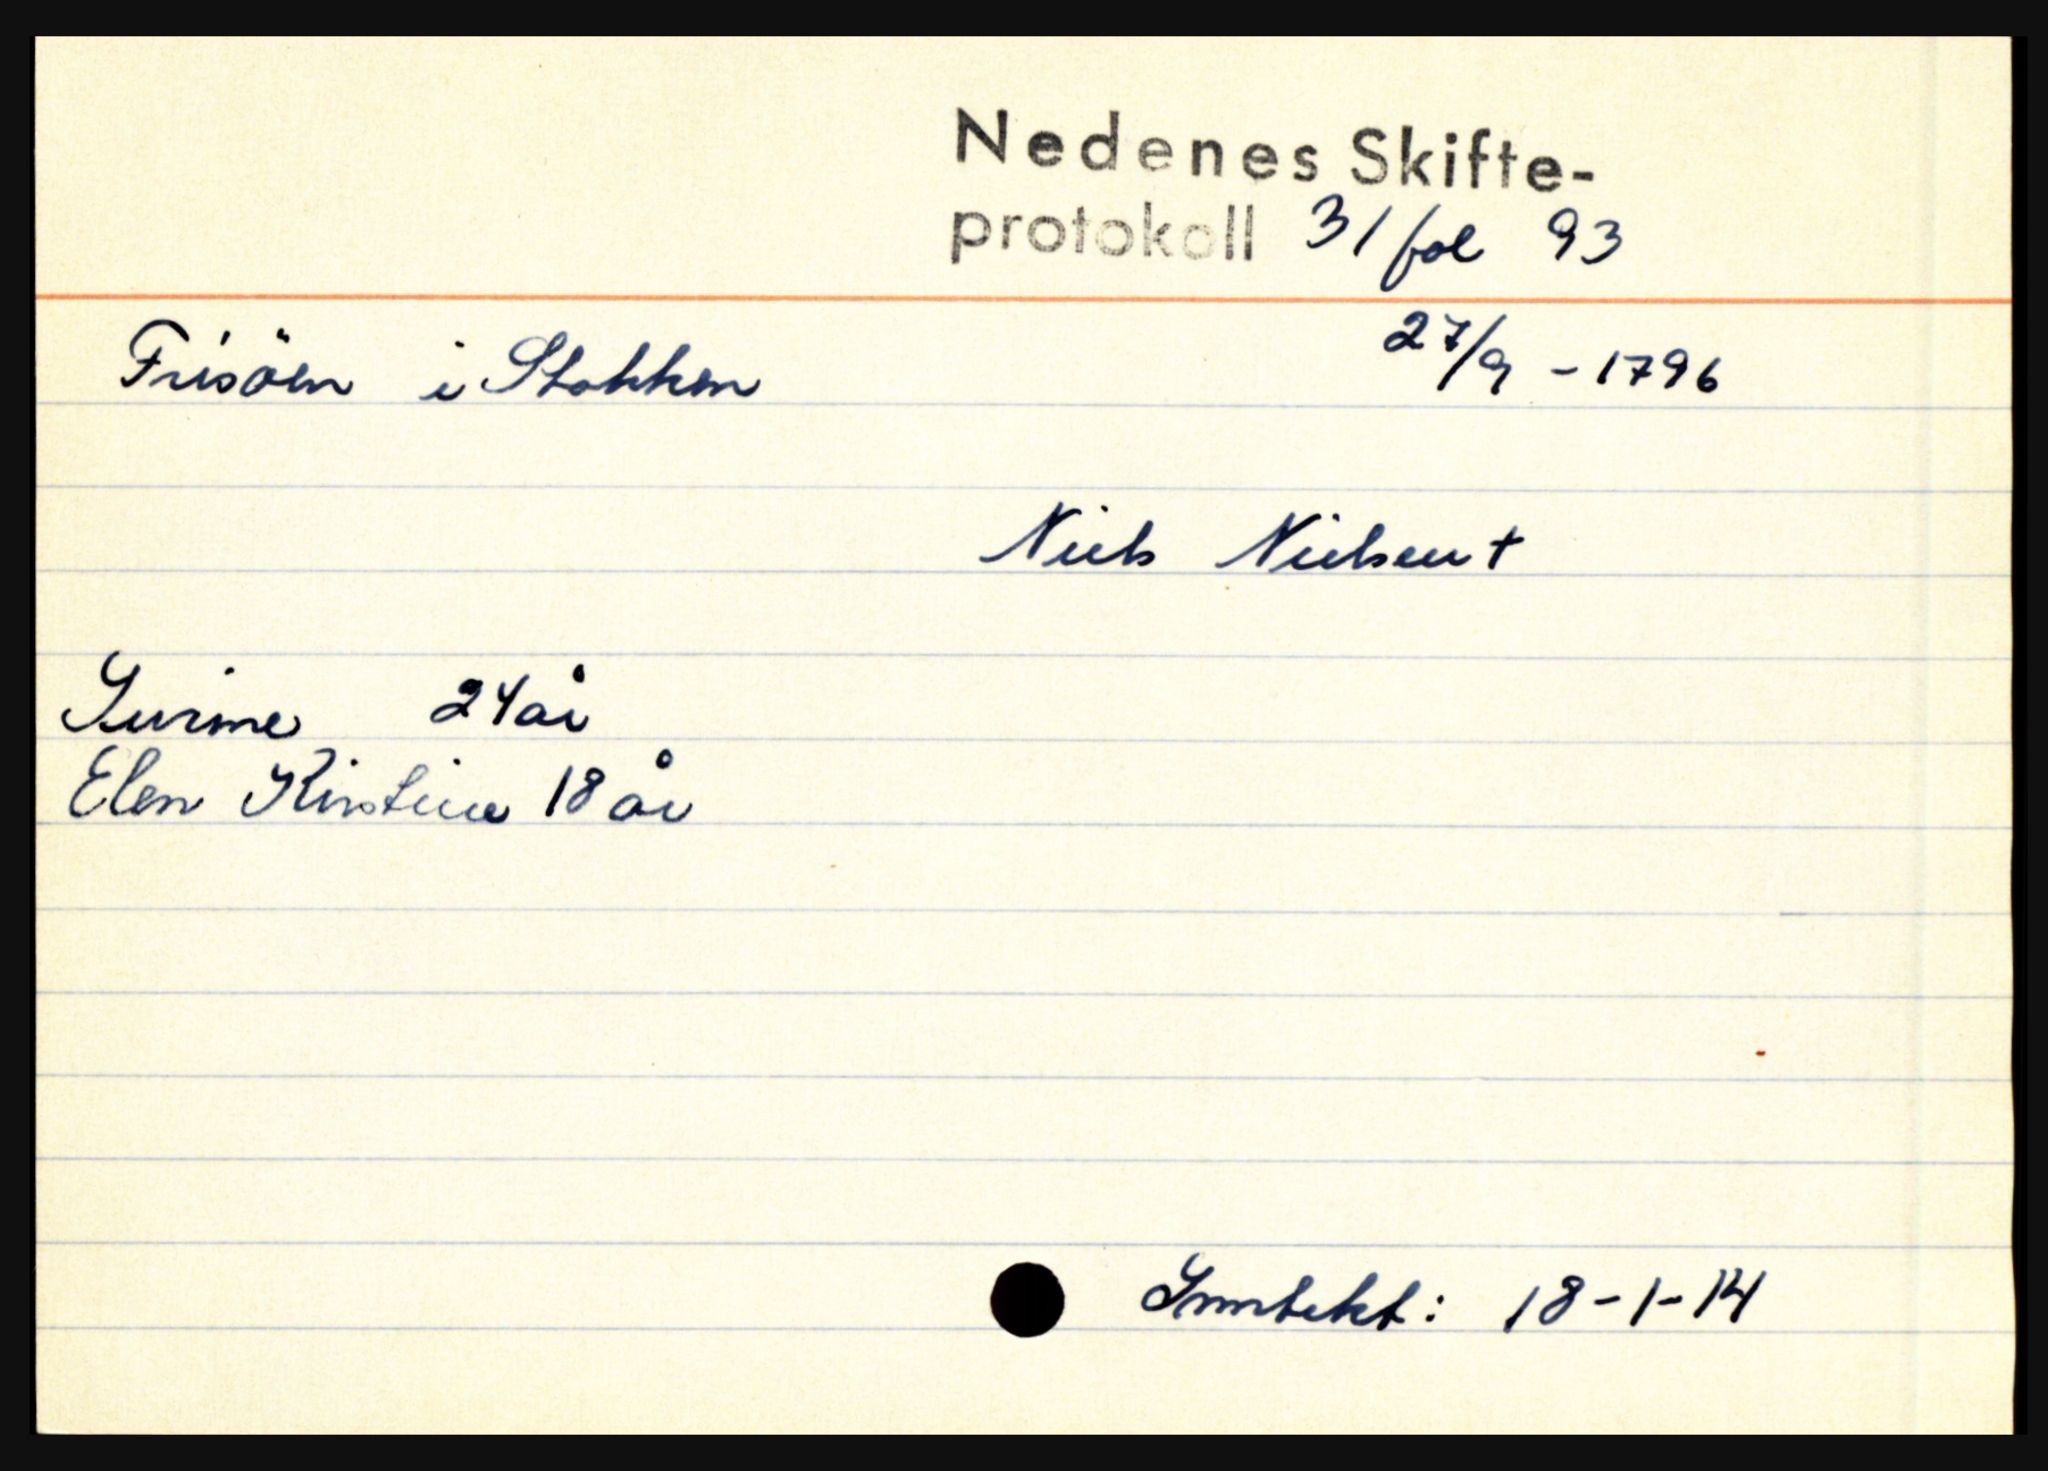 Nedenes Skifte-
protokoll 31 fol 93
Frisöen i Stokken 27/9 - 1796
Niels Nielsen +
24 år
Elen Kirstine 18 år
Inntekt: 18-1-14